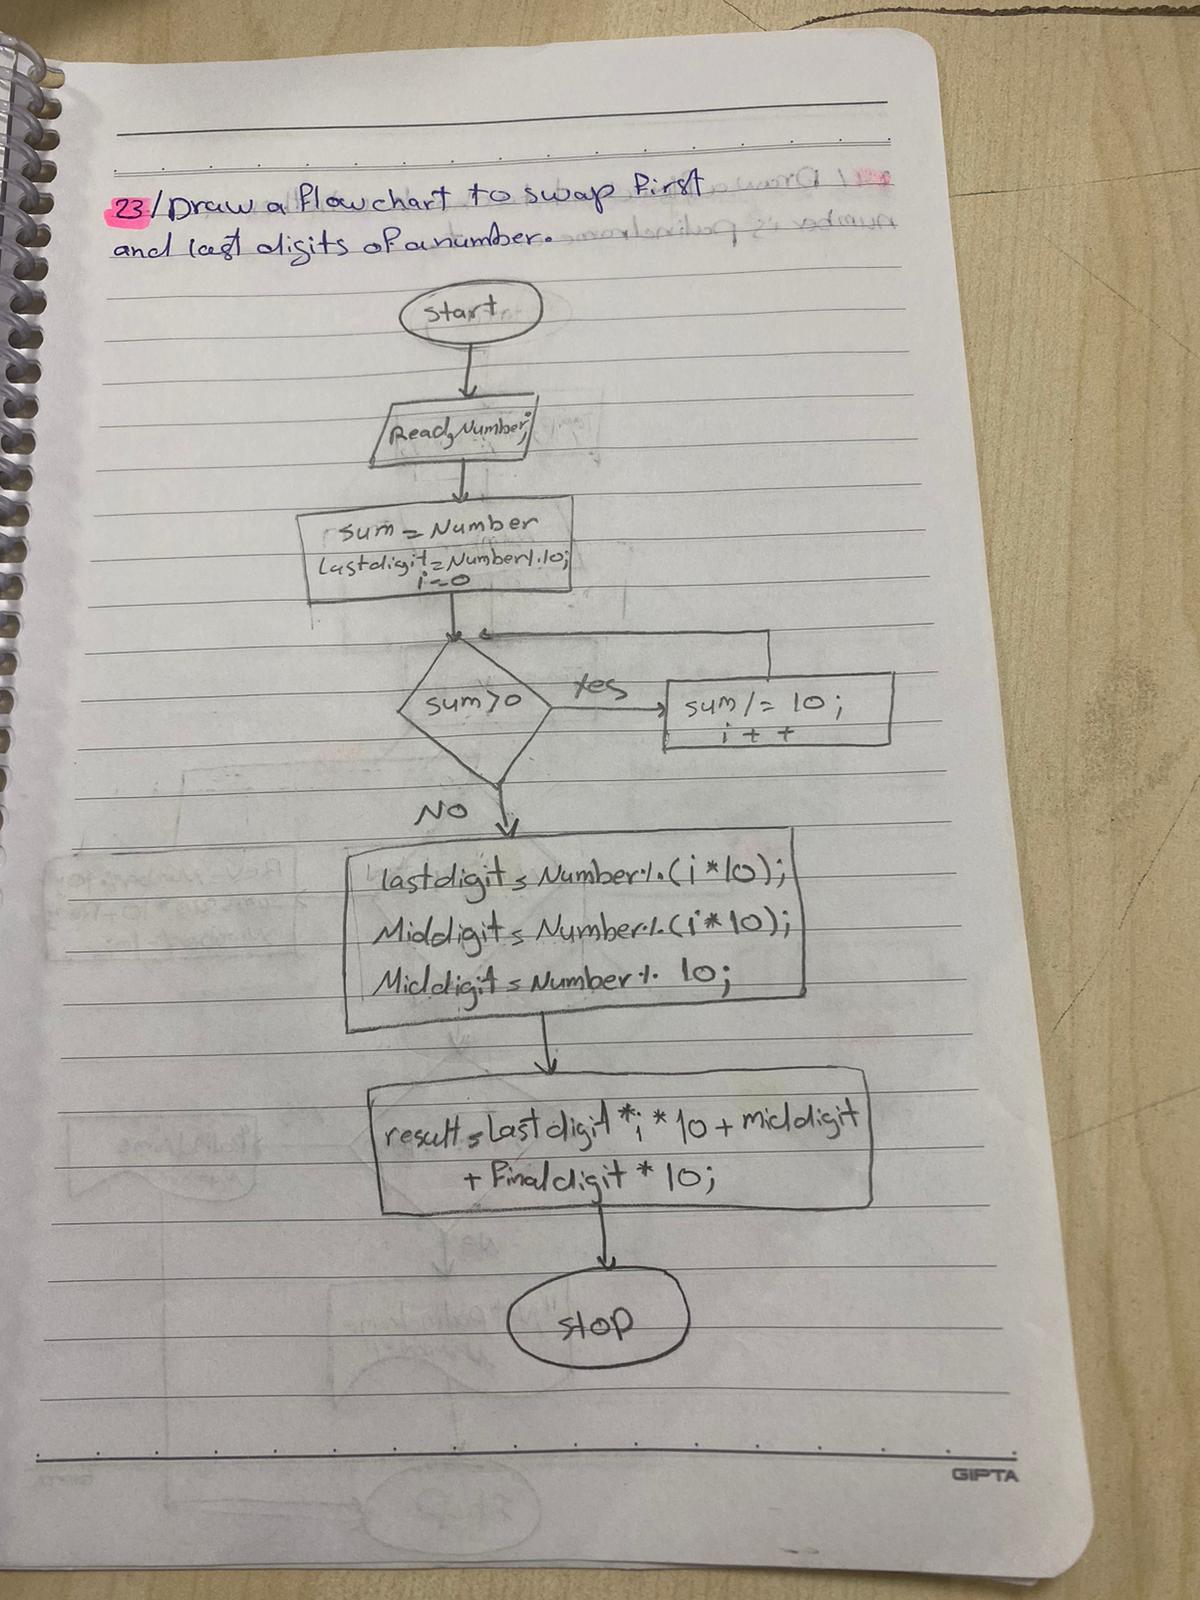 23/Draw a flowchart to swap first
and last digits of a number.
Start
Read, Number;
sum = Number
Lastdigit = Number%10;
i=0
sum>0
Yes
sum /= 10;
i++
NO
lastdigit = Number%(i*10);
Middigit = Number%(i*10);
Middigit = Number% 10;
result = Lastdigit *i *10 + middigit
+ Finaldigit * 10;
stop
GIPTA